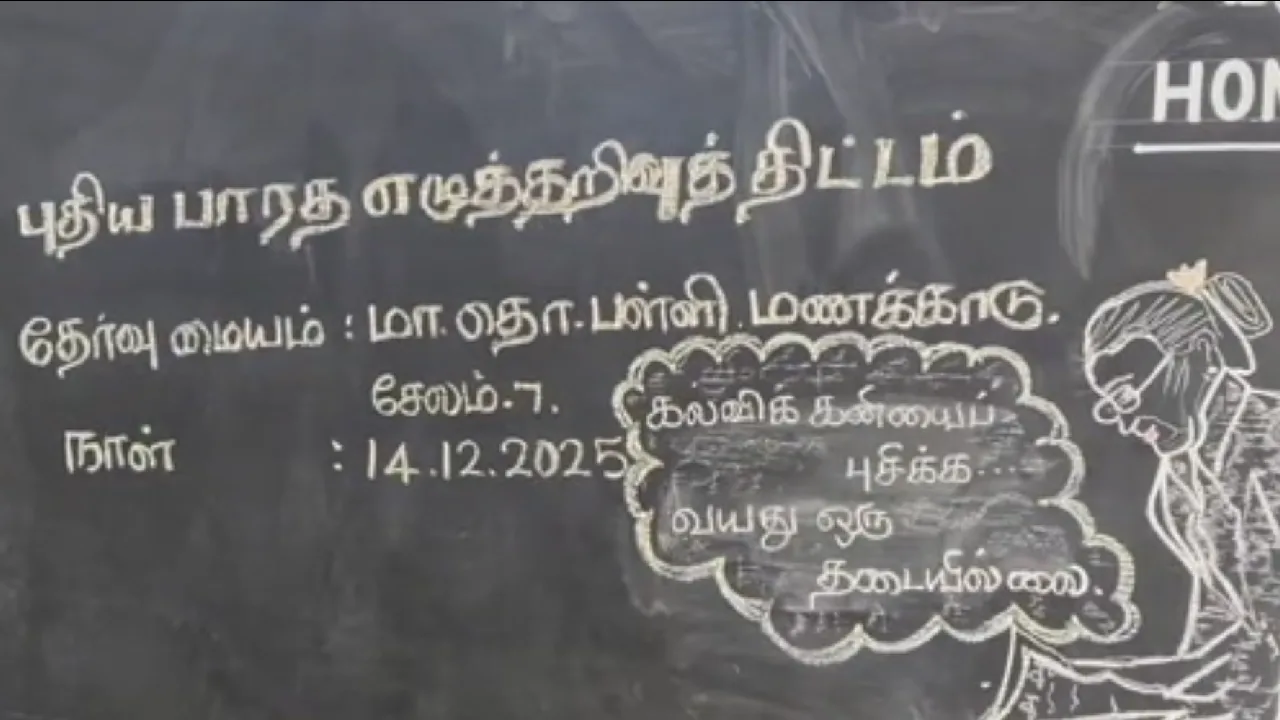 புதிய பாரத எழுத்தறிவுத் திட்டம்
தேர்வு மையம் : மா.தொ.பள்ளி. மணக்காடு.
சேலம்.7.
நாள் : 14.12.2025
கல்விக் கனியைப்
புசிக்க...
வயது ஒரு
தடையில்லை.